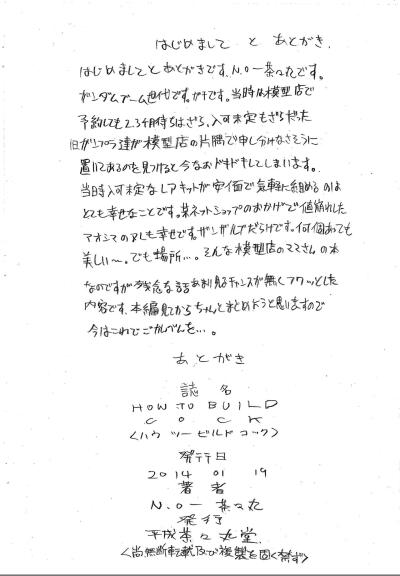 はじめまして と あとがき.
はじめましてとあとがきです。N.O一茶々丸です。
ガンダムブーム世代です。ガチです。当時は模型店で
予約しても2.3ヶ月待ちはざら、入荷未定もざらだった
旧ガンプラ達が模型店の片隅で申し分けなさそうに
置いてあるのを見つけると今なおドキドキしてしまいます。
当時入荷未定なレアキットが安価で気軽に組めるのは
とても幸せなことです。某ネットショップのおかげで値崩れした
アオシマのALも幸せです。ザンザルアだらけです。何個あっても
美しい〜。でも場所…。そんな模型店のママさんの本
なのですが残念な話あまり見るチャンスが無くフワッとした
内容です。本編見てからちゃんとまとめようと思いますので
今はこれでごかんべんを…。
あとがき
誌 名
HOW TO BUILD
COCK
<ハウ ツー ビルド コック>
発行日
2014 01 19
著者
N.O一茶々丸
発行
平成茶々丸堂.
<尚無断転載及び複製を固く禁ず>